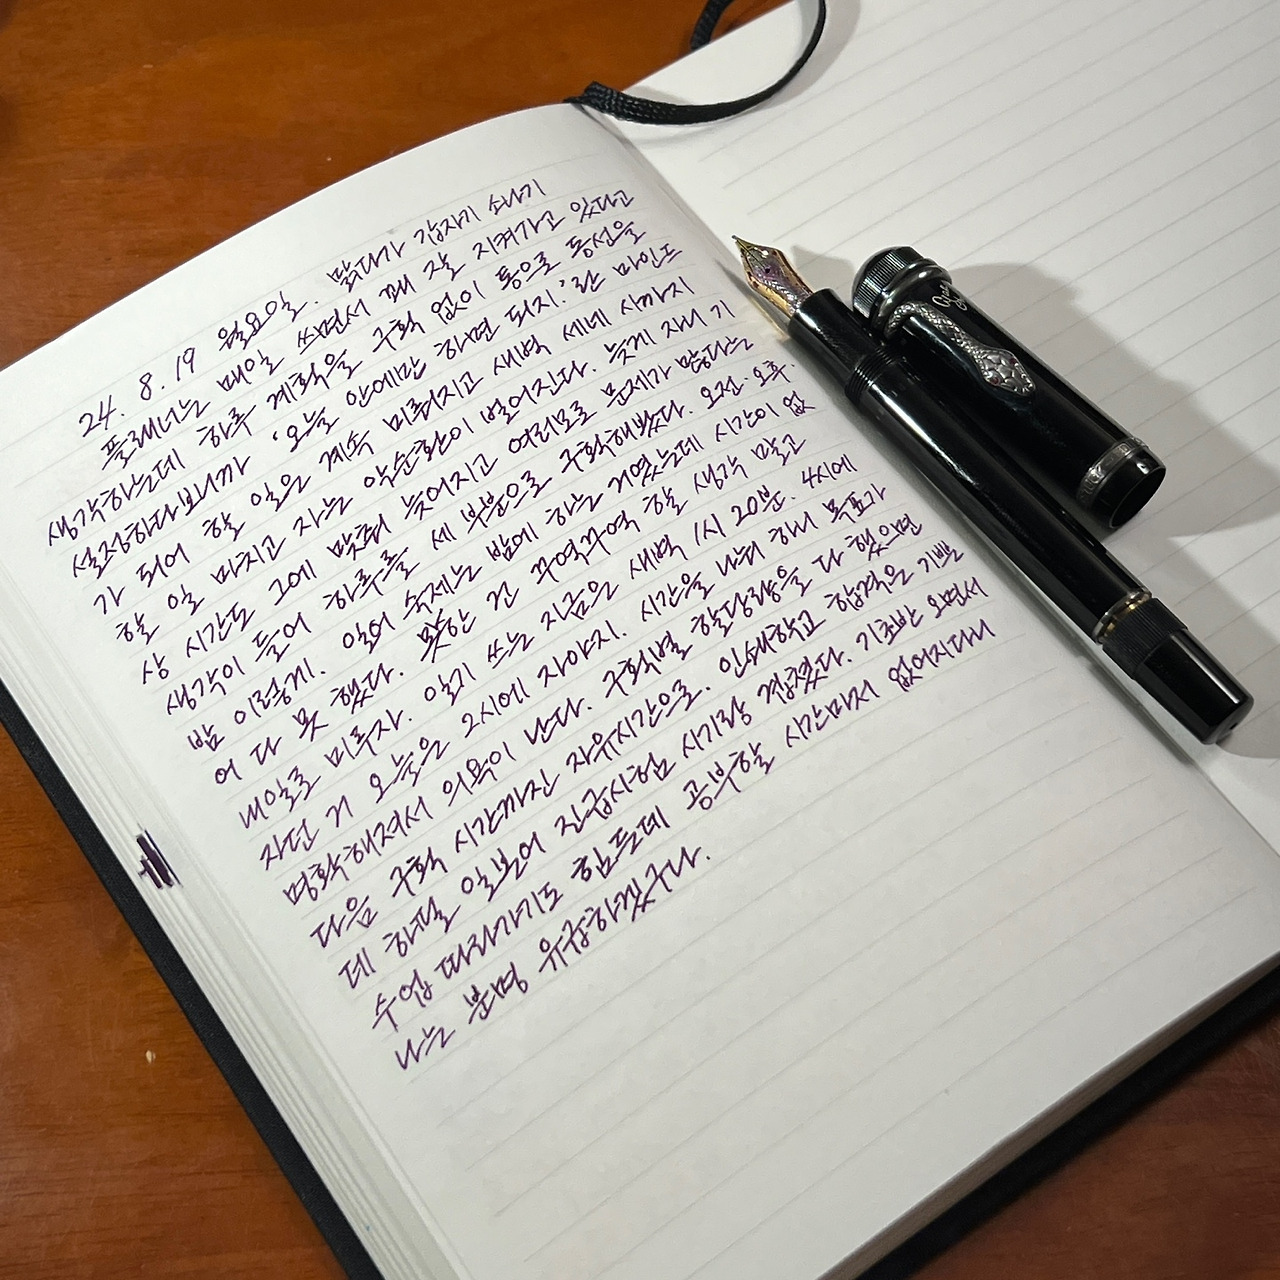 24. 8. 19 월요일. 맑다가 갑자기 소나기
플래너는 매일 쓰면서 꽤 잘 지켜가고 있다고
생각하는데 하루 계획을 구획 없이 통으로 동선을
설정하다보니까 '오늘 안에만 하면 되지.'란 마인드
가 되어 할 일은 계속 미뤄지고 새벽 세네 시까지
할 일 마치고 자는 악순환이 벌어진다. 늦게 자니 기
상 시간도 그에 맞춰 늦어지고 여러모로 문제가 많다는
생각이 들어 하루를 세 부분으로 구획해봤다. 오전·오후·
밤 이렇게. 일어 숙제는 밤에 하는 거였는데 시간이 없
어 다 못 했다. 못한 건 꾸역꾸역 할 생각 말고
내일로 미루자. 일기 쓰는 지금은 새벽 1시 20분. 4시에
자던 거 오늘은 2시에 자야지. 시간을 나눠 하니 목표가
명확해져서 의욕이 난다. 구획별 할당량을 다 했으면
다음 구획 시간까진 자유시간으로. 인쇄하고
데 하필 일본어 진급시험 시기랑 겹쳤다. 기초반 오면서
수업 따라가기도 힘든데 공부할 시간마저 없어지다니
나는 분명 유급하겠구나.